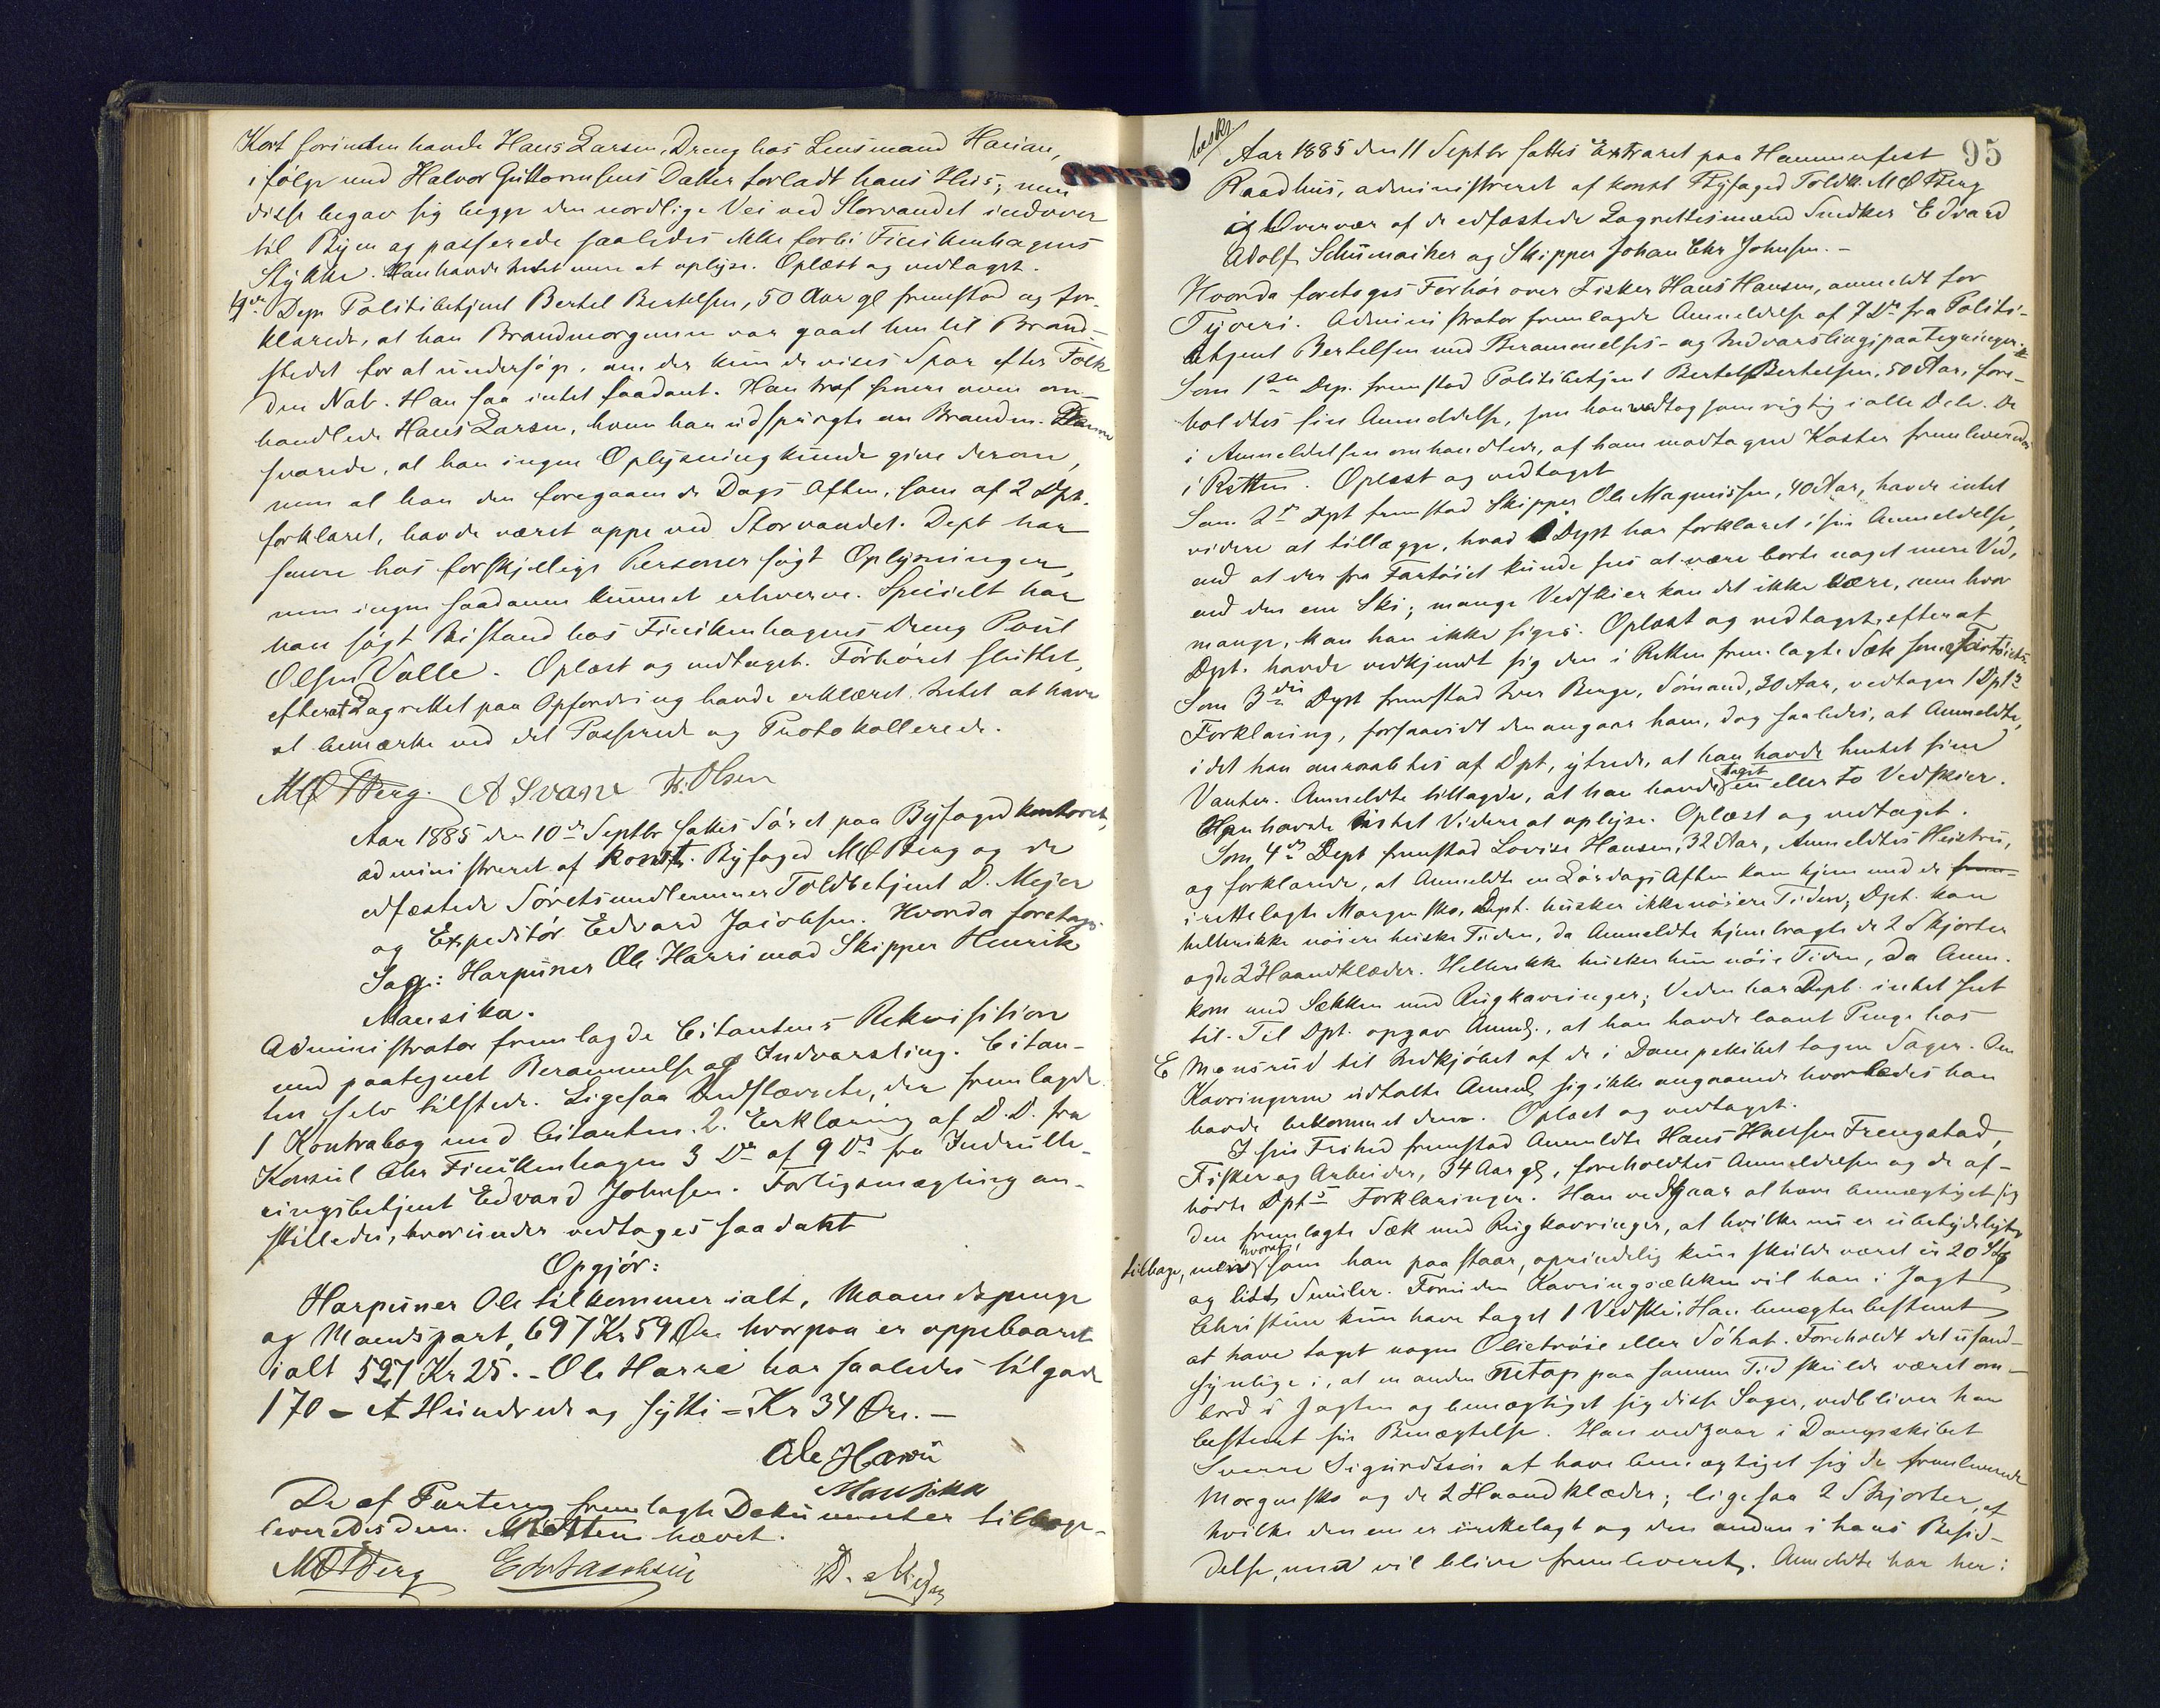 Kort forinden havde Hans Larsen, Dreng hos Lensmand Harian,
ifølge med Halvor Guttormsens Datter forladt hans Hus; men
disse begav sig begge den nordlige Vei ved Storvandet indover
til Byen og passerede saaledes ikke forbi Finckenhagens
Stykke. Han havde Intet mere at oplyse. Oplæst og vedtaget.
4de Dep Politibetjent Bertel Bertelsen, 50 Aar gl fremstod og for-
klarede, at han Brandmorgenen var gaaet hen til Brand-
stedet for at undersøge, om der kunde vises Spor efter Folk
den Nat. Han saa intet saadant. Han traf senere oven om-
handlede Hans Larsen, hvem han udspurgte om Branden. Denne
svarede, at han ingen Oplysning kunde give derom,
men at han den foregaaende Dags Aften, som af 2 Dpt.
forklaret, havde været oppe ved Storvandet. Dept har
senere hos forskjellige Personer søgt Oplysninger,
men ingen saadanne kunnet erhverve. Specielt har
han søgt Bistand hos Finckenhagens Dreng Poul
Olsen Valle. Oplæst og vedtaget. Forhøret sluttet,
efterat Lagrettet paa Opfordring havde erklæret Intet at have
at bemærke ved det Passerede og Protokollerede.
MØBerg. A Svane H. Olsen
Aar 1885 den 10de Septbr sattes Søret paa Byfogedkontoret,
administreret af konst. Byfoged MØBerg og de
edfæstede Søretsmedlemmer Toldbetjent D. Mejer
og Expeditør Edvard Jacobsen. Hvorda foretoges
Sag: Harpuner Ole Harri mod Skipper Henrik
Mansika.
Administrator fremlagde Citantens Rekvisition
med paategnet Berammelse og Indvarsling. Citan-
ten selv tilstede. Ligesaa Indstævnte, der fremlagde
1 Kontrabog med Citanten. 2. Erklæring af D.D. fra
Konsul Chr Finckenhagen 3 Do af 9 Ds fra Indrulle-
ringsbetjent Edvard Johnsen. Forligsmægling an-
stilledes, hvorunder vedtoges saadant
Opgjör:
Harpuner Ole tilkommer ialt, Maanedspenge
og Mandspart, 697 Kr 59 Øre hvorpaa er oppebaaret
ialt 527 Kr 25. - Ole Harri har saaledes tilgode
170 - Et Hundrede og sytti - Kr 34 Øre. -
Ole Harri
Mansikka
De af Parterne fremlagte Dokumenter tilbage-
leveredes dem. Retten hævet.
MØBerg Edv Jacobsen D. Mejer
95
Aar 1885 den 11 Septbr sattes Extraret paa Hammerfest
Raadhus, administreret af konst Byfoged Toldk. MØBerg
i Overvær af de edfæstede Lagrettesmænd Snedker Edvard
Adolf Schumaiker og Skipper Johan Chr Johnsen. -
Hvorda foretoges Forhör over Fisker Hans Hansen, anmeldt for
Tyveri. Administrator fremlagde Anmeldelse af 7 Ds fra Politi-
betjent Bertelsen med Berammelses- og Indvarslingspaategninger.
Som 1ste Dep. fremstod Politibetjent Bertel Bertelsen, 50 Aar, fore-
holdtes sin Anmeldelse, som han vedtog som rigtig i alle Dele. De
i Anmeldelsen omhandlede, af ham modtagne Koster fremleveredes
i Retten. Oplæst og vedtaget
Som 2de Dpt fremstod Skipper Ole Magnussen, 40 Aar, havde intet
videre at tillægge, hvad Dept har forklaret i sin Anmeldelse,
end at der fra Fartöiet kunde sees at være borte noget mere Ved,
end den ene Ski; mange Vedskier kan det ikke være, men hvor
mange, kan han ikke sige. Oplæst og vedtaget, efterat
Dpt. havde vedkjendt sig den i Retten fremlagte Sæk som Fartöiets.
Som 3die Dept fremstod Iver Berge, Sömand, 30 Aar, vedtager 1 Dpts
Forklaring, forsaavidt den angaar ham, dog saaledes, at Anmeldte,
idet han anraabtes af Dpt, ytrede, at han havde hentet sine
Vanter. Anmeldte tillagde, at han havde taget en eller to Vedskier.
Han havde intet Videre at oplyse. Oplæst og vedtaget.
Som 4de Dept fremstod Lovise Hansen, 32 Aar, Anmeldtes Hustru,
og forklarede, at Anmeldte en Lørdags Aften kom hjem med de frem-
irettelagte Morgensko, Dept. husker ikke nöiere Tiden; Dpt. kan
hellerikke nöiere huske Tiden, da Anmeldte hjembragte de 2 Skjorter
og de 2 Haandklæder. Hellerikke husker hun nöie Tiden, da Anm.
kom med Sækken med Rugkavringer; Veden har Dept. intet seet
til. Til Dpt. opgav Anmd., at han havde laant Penge hos
E Monsrud til Indkjöbet af de i Dampskibet tagne Sager. Om
Kavringerne udtalte Anmd sig ikke angaaende hvorledes han
havde bekommet dem. Oplæst og vedtaget.
I sin Frihed fremstod Anmeldte Hans Hansen Frengstad,
Fisker og Arbeider, 34 Aar gl, foreholdtes Anmeldelsen og de af-
hørte Dpts Forklaringer. Han vedgaar at have bemægtiget sig
den fremlagte Sæk med Rugkavringer, af hvilke nu er ubetydeligt
tilbage, men hvoraf, som han paastaar, oprindelig kun skulde været ca 20 Stk
og lidt Smuler. Foruden Kavringsækken vil han i Jagt
Christine kun have taget 1 Vedski. Han benægter bestemt
at have taget nogen Olietröie eller Söhat. Foreholdt det usand-
synlige i, at en anden netop paa samme Tid skulde været om-
bord i Jagten og bemægtiget sig disse Sager, vedbliver han
bestemt sin Benægtelse. Han vedgaar i Dampskibet
Sverre Sigurdssön at have bemægtiget sig de fremleverede
Morgensko og de 2 Haandklæder; ligesaa 2 Skjorter, af
hvilke den ene er irettelagt og den anden i hans Besid-
delse, men vil blive fremleveret. Anmeldte har her i